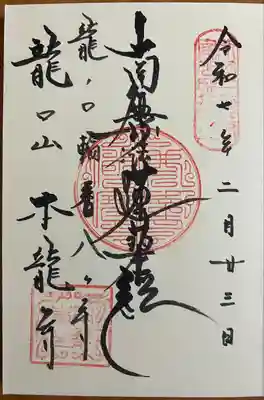 令和七年二月廿三日
南無妙法蓮華経
龍ノ口輪番八ヶ寺
龍口山 本龍寺